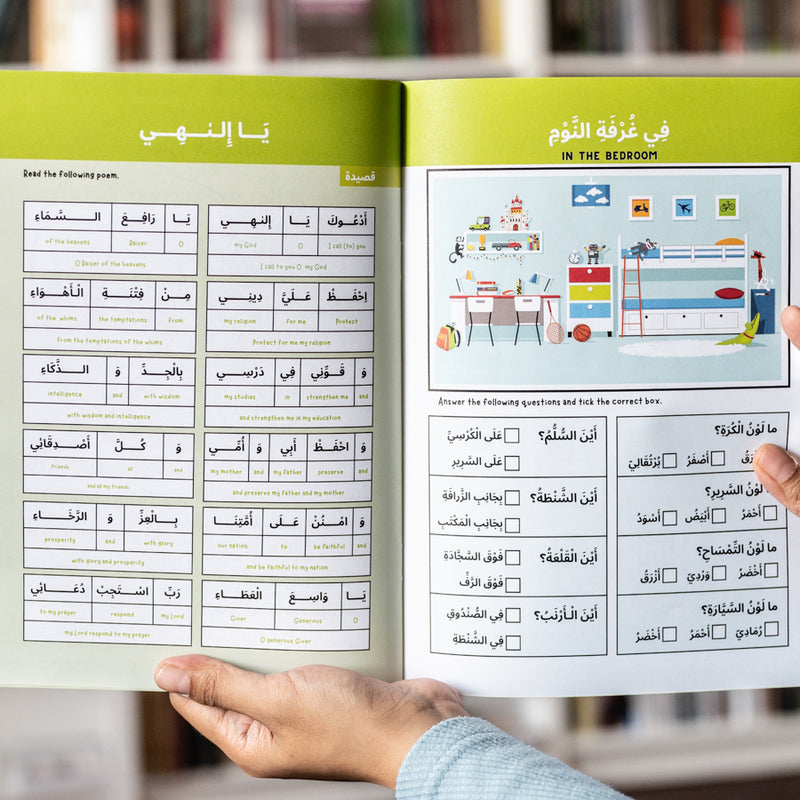 يَا إِلٰهِي
Read the following poem.
قصيدة
أَدْعُوكَ يَا إِلٰهي
my God O I call (to) you
I call to you O my God
يَا رَافِعَ السَّمَاءِ
of the heavens Raiser O
O Raiser of the heavens
اِحْفَظْ عَلَيَّ دِينِي
my religion for me Protect
Protect for me my religion
مِنْ فِتْنَةِ الْأَهْوَاءِ
of the whims the temptations from
from the temptations of the whims
وَ قَوِّنِي فِي دَرْسِي
my studies in strengthen me and
and strengthen me in my education
بِالْجِدِّ وَ الذَّكَاءِ
intelligence and with wisdom
with wisdom and intelligence
وَ احْفَظْ أَبِي وَ أُمِّي
my mother and my Father preserve and
and preserve my Father and my mother
وَ كُلَّ أَصْدِقَائِي
friends all and
and all my friends
وَ امْنُنْ عَلَى أُمَّتِنَا
our nation to be faithful and
and be faithful to my nation
بِالْعِزِّ وَ الرَّخَاءِ
prosperity and with glory
with glory and prosperity
يَا وَاسِعَ الْعَطَاءِ
Giver Generous O
O generous Giver
رَبِّ اسْتَجِبْ دُعَائِي
to my prayer respond my Lord
my Lord respond to my prayer
فِي غُرْفَةِ النَّوْمِ
IN THE BEDROOM
Answer the following questions and tick the correct box.
ما لَوْنُ الْكُرَةِ؟
أَصْفَرُ بُرْتُقَالِيَ
لَوْنُ السَّرِيرِ؟
أَحْمَرُ أَبْيَضُ أَسْوَدُ
ما لَوْنُ التِّمْسَاحِ؟
أَخْضَرُ وَرْدِيَ أَزْرَقُ
ما لَوْنُ السَّيَّارَةِ؟
رُمَادِيَ أَحْمَرُ أَخْضَرُ
أَيْنَ السُّلَّمُ؟ عَلَى الْكُرْسِيِّ
عَلَى السَّرِيرِ
أَيْنَ الشَّنْطَةُ؟ بِجَانِبِ الزَّرافَةِ
بِجَانِبِ الْمَكْتَبِ
أَيْنَ الْقَلْعَةُ؟ فَوْقَ السَّجَّادَةِ
فَوْقَ الرَّفِّ
أَيْنَ الْأَرْنَبُ؟ فِي الصُّنْدُوقِ
فِي الشَّنْطَةِ